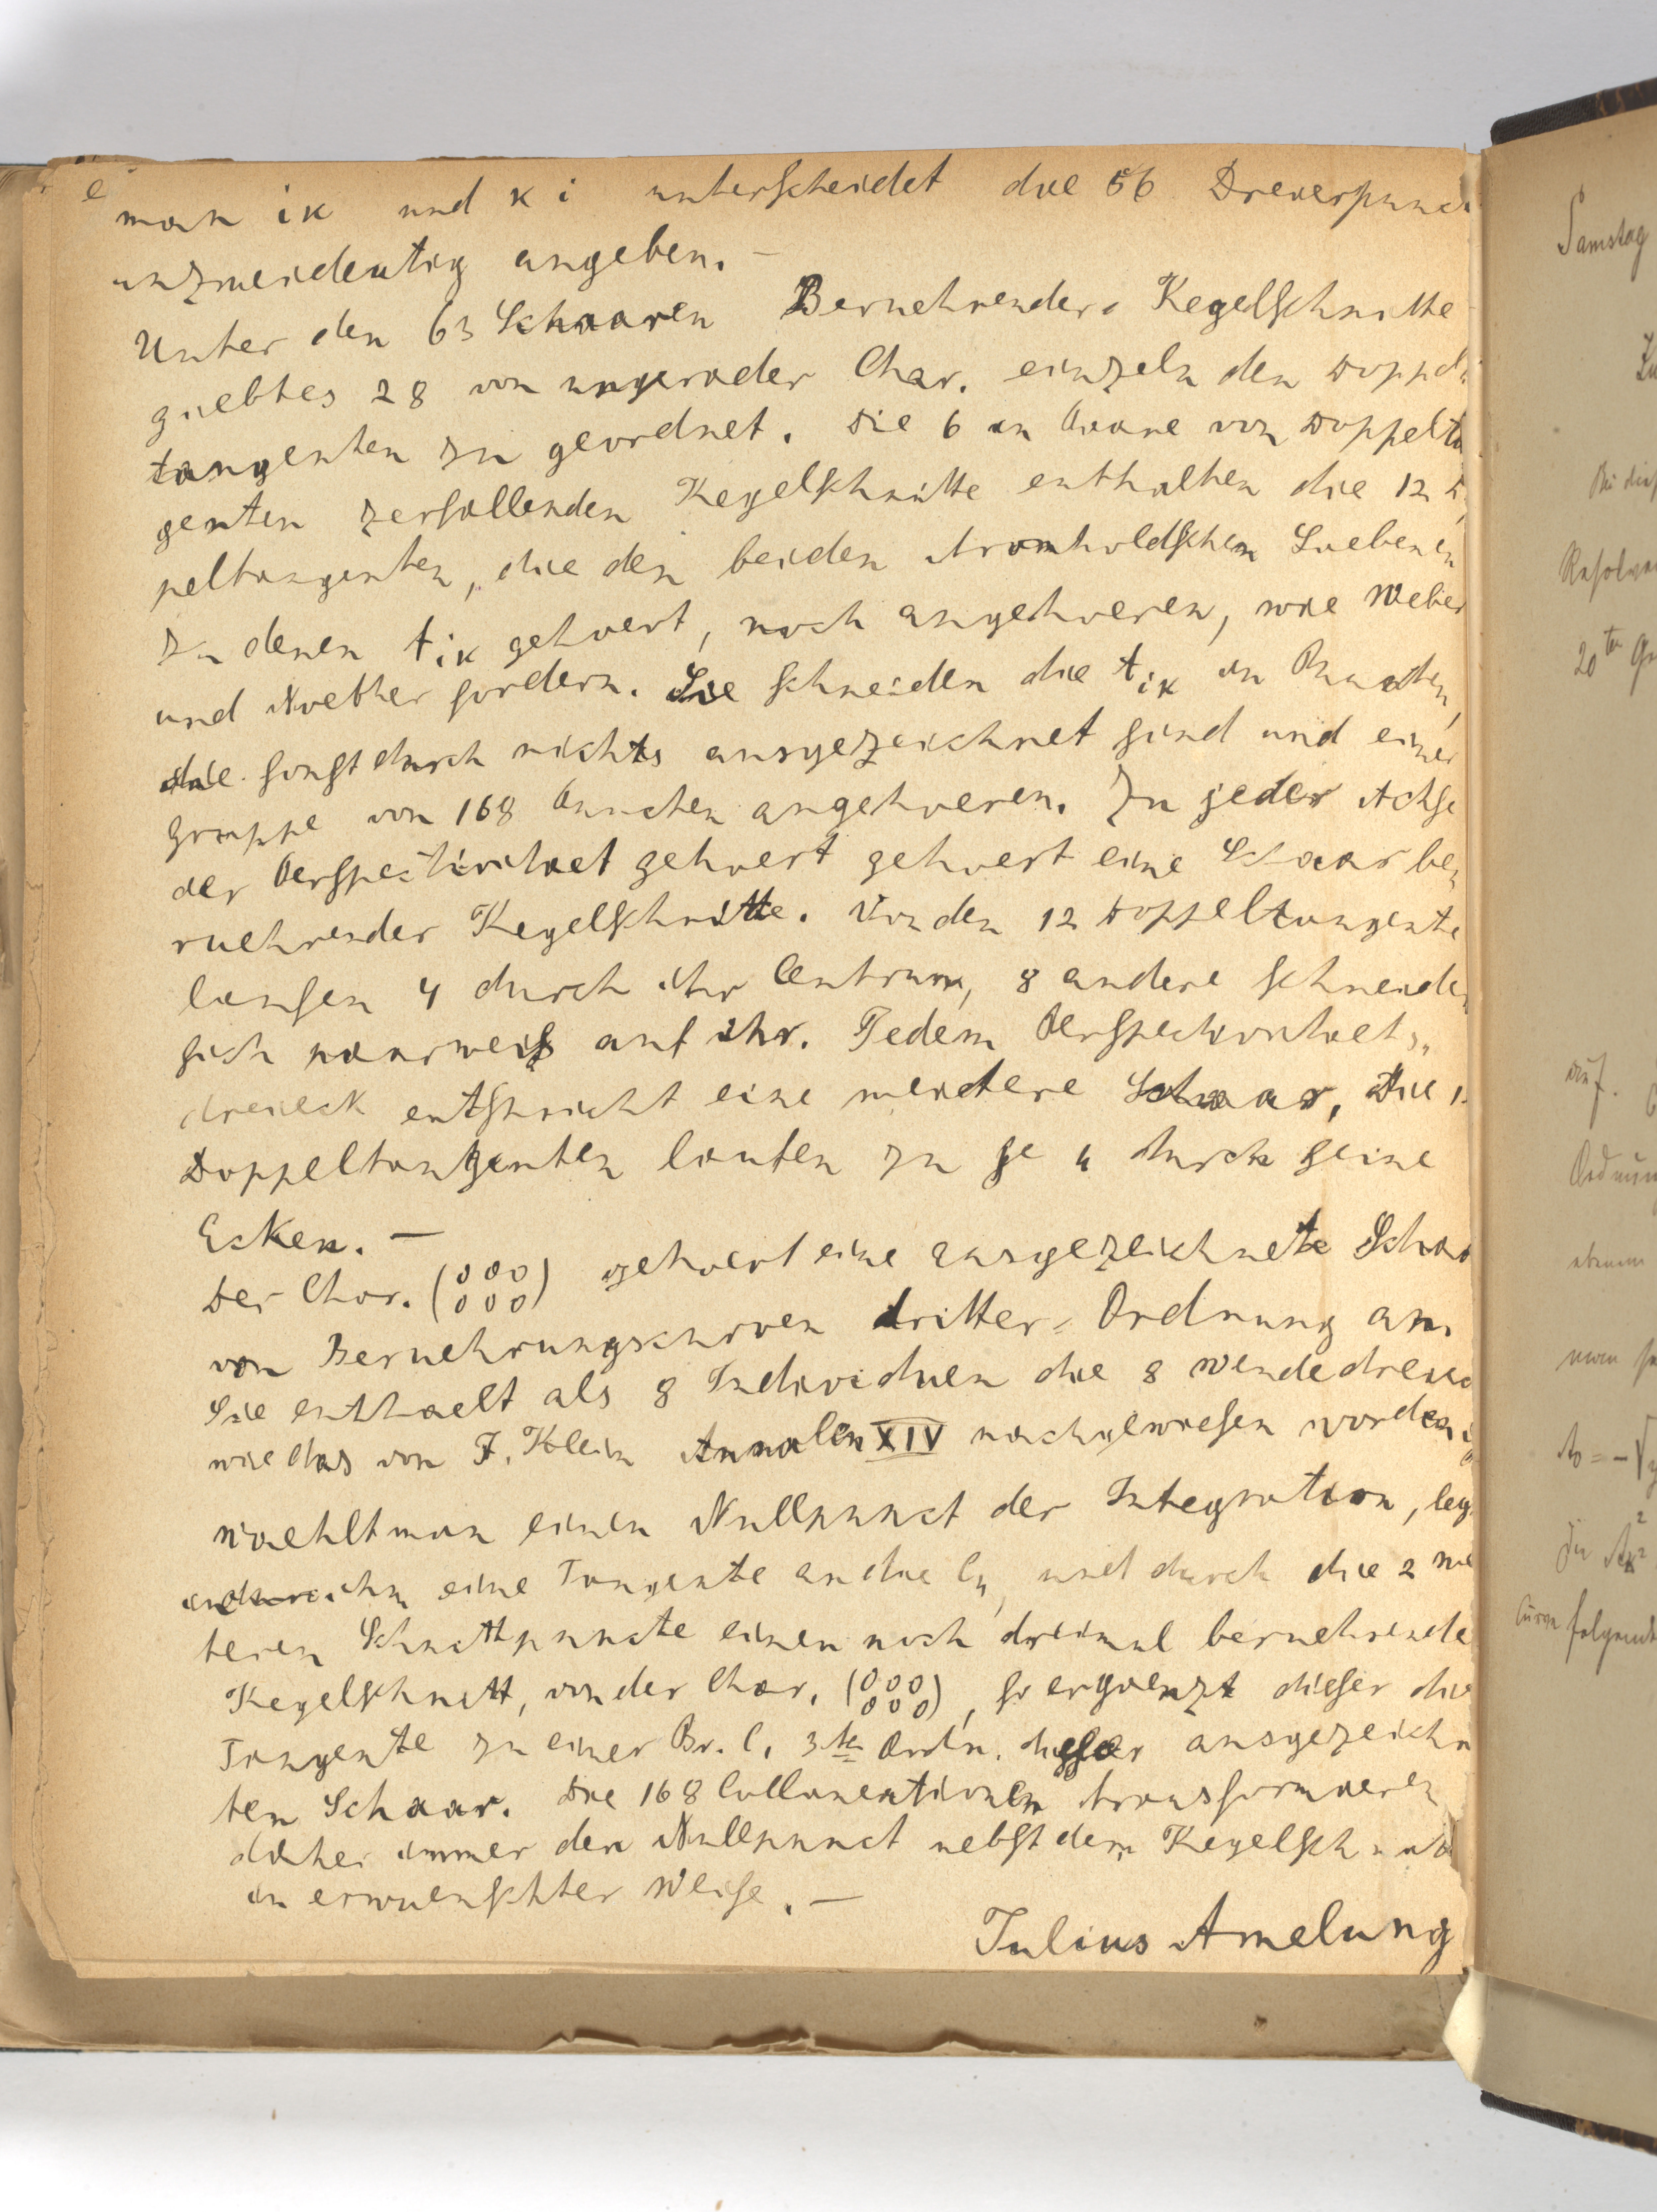 man ik und κ i unterscheidet die 56 Dreierpunct
unzweideutig angeben. —
Unter den 63 Schaaren Beruehrender Kegelschnitte
giebtes 28 von ungerader Char. einzeln den Doppel
tangenten zu geordnet. Die 6 in Paare von Doppelta
genten zerfallenden Kegelschnitte enthalten die 12 D
peltangenten, die den beiden Aronholdschen Siebenen
zu denen t_iκ gehoert, noch angehoeren, wie Weber
und Noether fordern. Sie schneiden die t_iκ in Puncten,
die sonst durch nichts ausgezeichnet sind und einer
Gruppe von 168 Puncten angehoeren. Zu jeder Achse
der Perspectivitaet gehoert gehoert eine Schaar be
ruehrender Kegelschnitte. Von den 12 Doppeltangente
laufen 4 durch ihr Centrum, 8 andere schneiden
sich paarweis auf ihr. Jedem Perspectivitaets
dreieck entspricht eine weitere Schaar, Die 1
Doppeltangenten laufen zu je 4 durch seine
Ecken. —
Der Char. (000/000) gehoert eine ausgezeichnete Schaa
von Beruehrungscurven dritter Ordnung an.
Sie enthaelt als 8 Individuen die 8 Wendedreiec
wie das von F. Klein Annalen XIV nachgewiesen worden
Waehlt man einen Nullpunct der Integration, leg
ihn eine Tangente an die C4, und durch die 2 wei
teren Schnittpuncte einen noch dreimal beruehrende
Kegelschnitt, von der Char. (000/000), so ergaenzt dieser die
Tangente zu einer Br. C. 3ter Ordn. dieser ausgezeichn
ten Schaar. Die 168 Collineationen transformieren
daher immer den Nullpunct nebst dem Kegelschnitt
in erwuenschter Weise. —
Julius Amelung
Samstag
Zu
Bei dies
Resolve
20ten Gr
auf.
Ordnun
man
Curve folgende